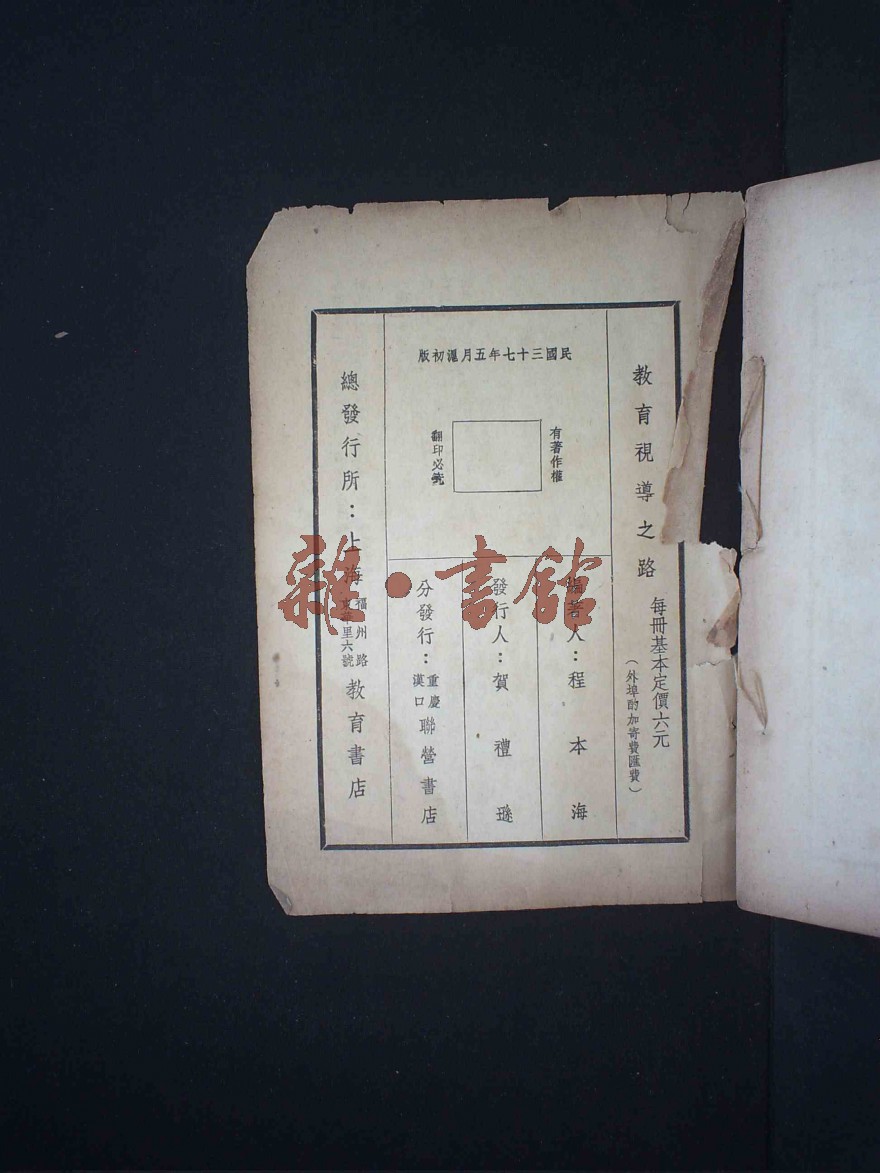 教育視導之路
每冊基本定價六元
(外埠酌加寄費匯費)
民國三十七年五月滬初版
有著作權
翻印必究
編著人：程本海
發行人：賀禮遜
分發行：重慶漢口聯營書店
總發行所：上海福州路東華里六號教育書店
雜·書館